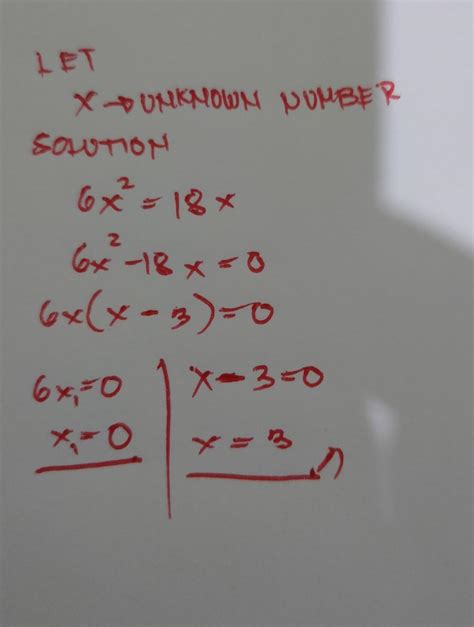 LET
X → UNKNOWN NUMBER
SOLUTION
6x² = 18x
6x² - 18x = 0
6x(x - 3) = 0
6x₁ = 0
x₁ = 0
x - 3 = 0
x = 3